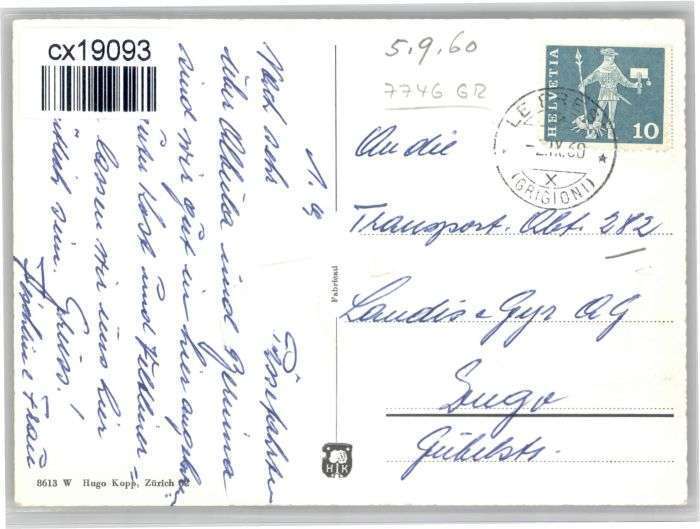 cx19093
5.9.60
7746 GR
HELVETIA
10
LE PRESE
-2.IX.60
X
(GRIGIONI)
An die
Transport. Abt. 282
Landis & Gyr AG
Zugo
Gubelstr.
1. 9.
Nach sehr Passfahrten
über Albula und Bernina
sind wir gut in hier
Kost und Veltliner-
lassen wir uns hier
sein. Gruss!
Frau
Fabricad
HK
8613 W Hugo Kopp, Zürich 02